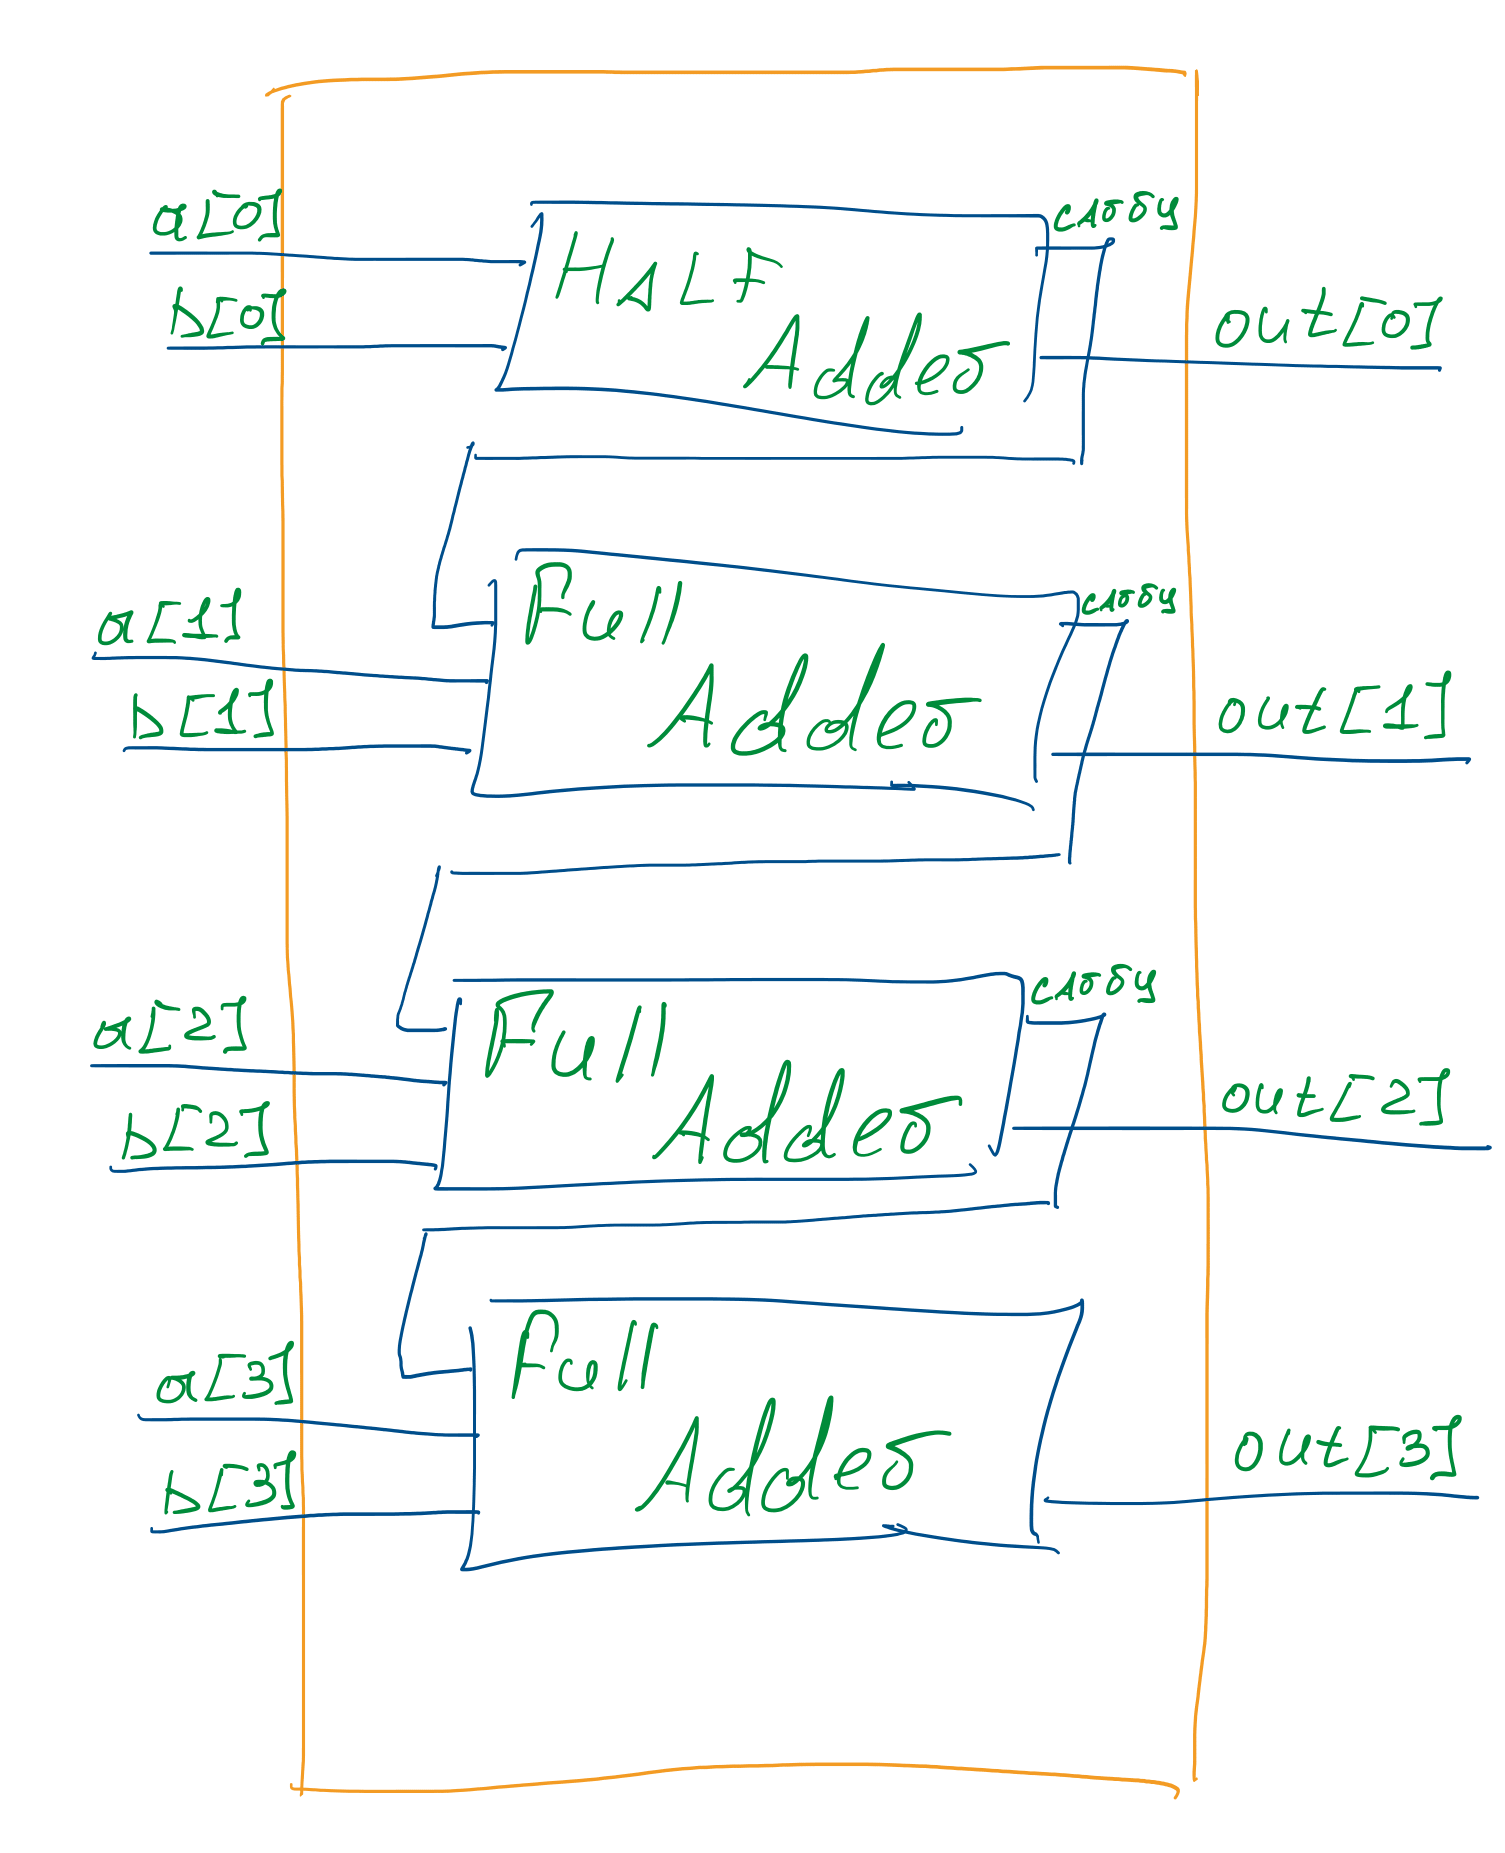 a[0]
b[0]
HALF
Adder
carry
out[0]
a[1]
b[1]
Full
Adder
carry
out[1]
a[2]
b[2]
Full
Adder
carry
out[2]
a[3]
b[3]
Full
Adder
out[3]